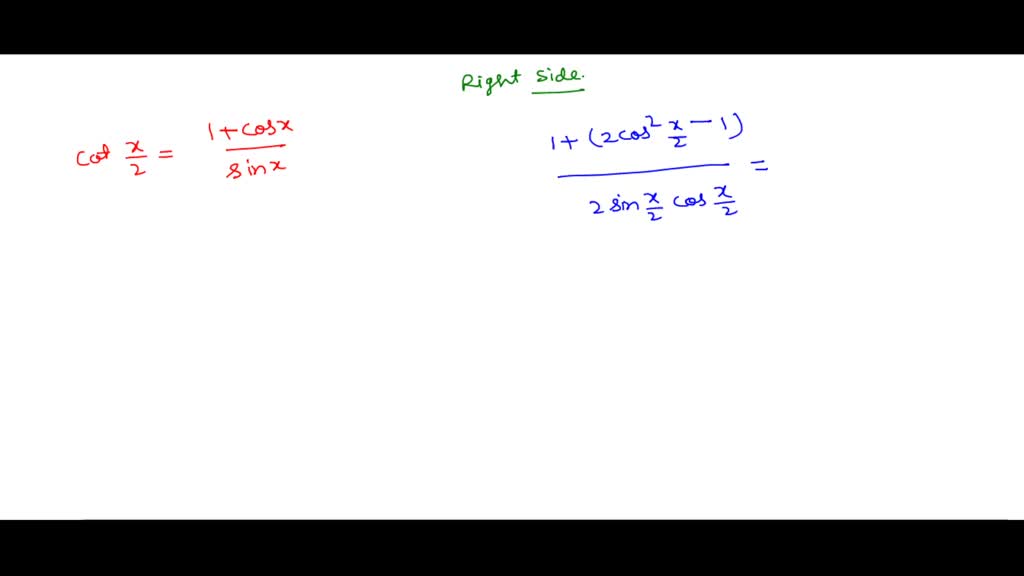 Right side.
cot x/2 = 1+cosx / sinx
1+(2cos² x/2 − 1) / 2 sin x/2 cos x/2 =